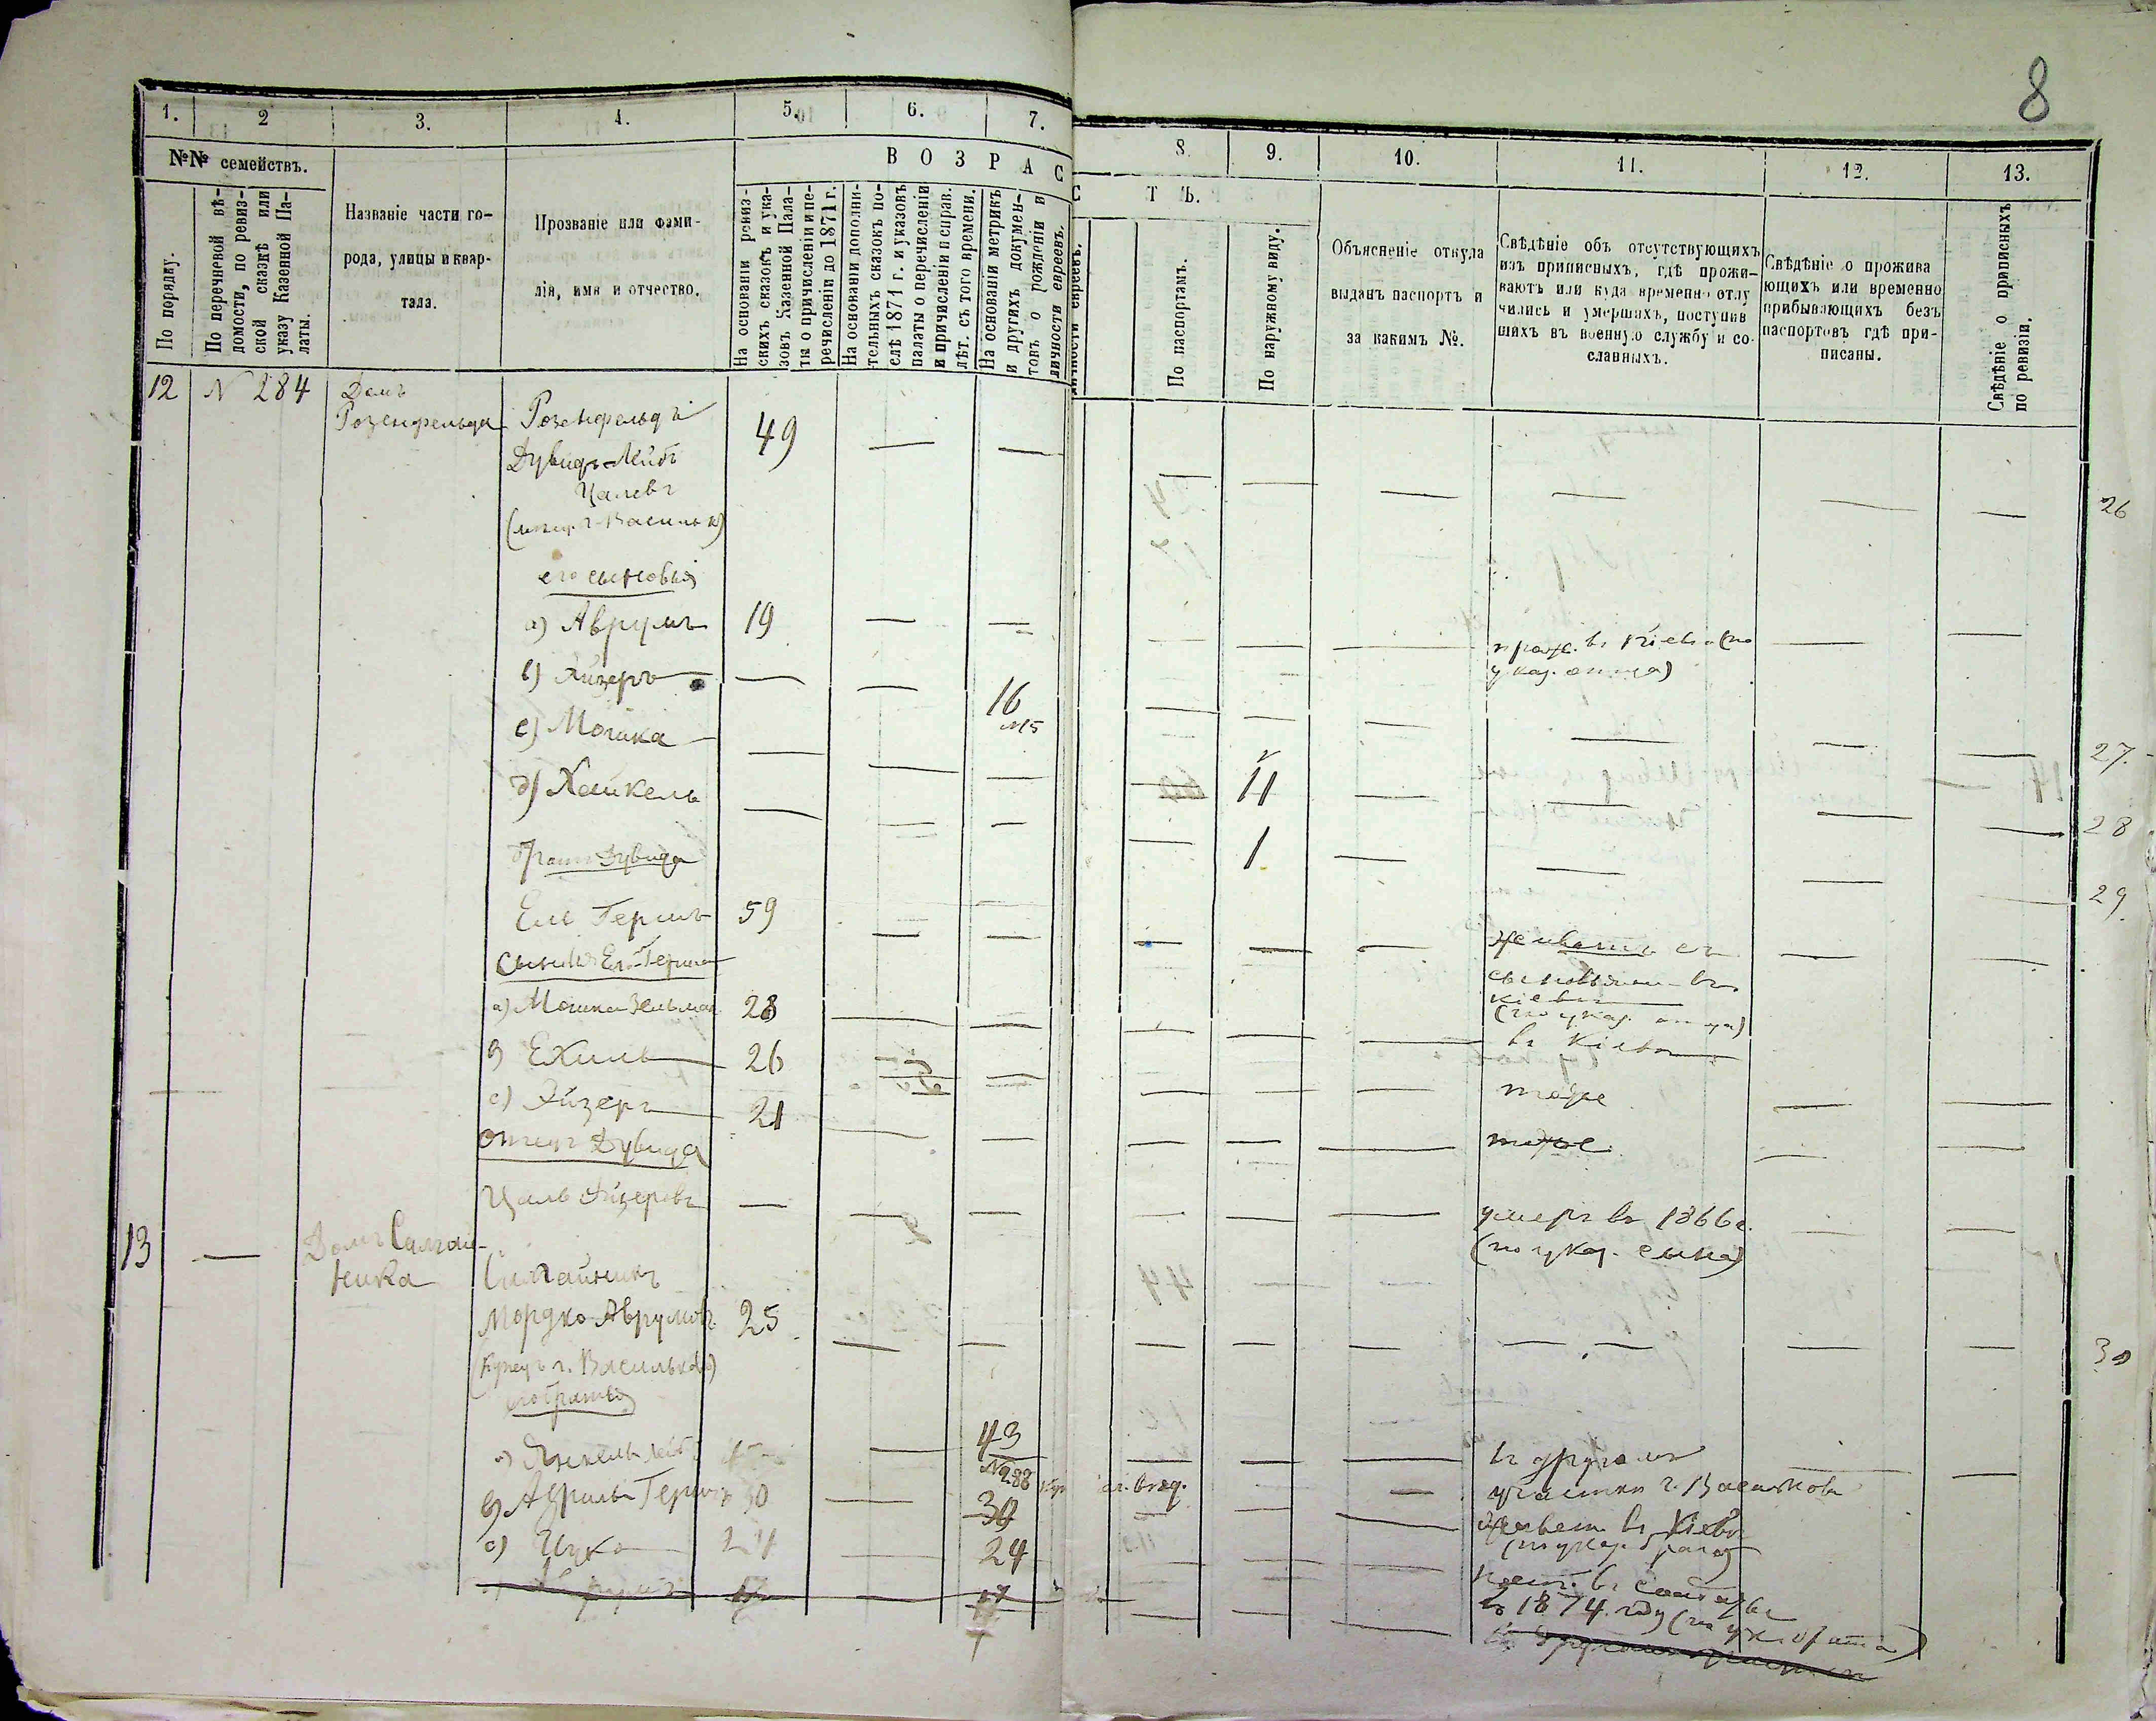 8
1. 2 3. 4. 5. 6. 7. 8. 9. 10. 11. 12. 13.
№№ семействъ.
В О З Р А С Т Ъ.
По порядку.
По перечневой вѣ-
домости, по ревиз-
ской сказкѣ или
указу Казенной Па-
латы.
Названіе части го-
рода, улицы и квар-
тала.
Прозваніе или фами-
лія, имя и отчество.
На основаніи ревиз-
скихъ сказокъ и ука-
зовъ Казенной Пала-
ты о причисленіи и пе-
речисленіи до 1871 г.
На основаніи дополни-
тельныхъ сказокъ по-
слѣ 1871 г. и указовъ
палаты о перечисленіи
и причисленіи и справ.
лѣт. съ того времени.
На основаніи метрикъ
и другихъ докумен-
товъ о рожденіи и
личности евреевъ.
По паспортамъ.
По наружному виду.
Объясненіе откуда
выданъ паспортъ и
за какимъ №.
Свѣдѣніе объ отсутствующихъ
изъ приписныхъ, гдѣ прожи-
ваютъ или куда временно отлу
чились и умершихъ, поступив
шихъ въ военную службу и со-
сланныхъ.
Свѣдѣніе о прожива
ющихъ или временно
прибывающихъ безъ
паспортовъ гдѣ при-
писаны.
Свѣдѣніе о приписныхъ
по ревизіи.
12 N 284 Домъ
Розенфельда Розенфельдъ
Дувидъ-Лейбъ 49 — — — — — — — — 26
Цалевъ
(мѣщ. г. Васильк)
его сыновья
а) Аврумъ 19 — — — — — прож. въ Кіевѣ (по — —
указ. отца)
в) Айзеръ — — 16 — — — — — — 27.
N15
с) Мошка — — — — 11 — — — — 28
д) Хайкель — — — — 1 — — — — 29.
братъ Дувида
Ель Гершъ 59 — — — — — живетъ съ — —
сыновьями въ
Кіевѣ
(по указ. отца)
сыновья Ель-Герша
а) Мошка Зельман 28 — — — — — въ Кіевѣ
в) Ехиль 26 — — — — — тоже — —
с) Эйзеръ 21 — — — — — тоже — —
отецъ Дувида
Цаль Эйзеровъ — — — — — — умеръ въ 1866 г. — —
(по указ. сына)
13 — Домъ Салгай-
ника Салгайникъ
Мордко Аврумовъ 25 — — — — — — — — 30
(Купецъ г. Василькова)
его братья
а) Янкель Лейб — 43 — — — въ другомъ — —
N 288
участкѣ г. Василькова
в) Аврумъ Герш 30 — 30 — — — живетъ въ Кіевѣ
(по указ. брата)
с) Ицко 24 — 24 — — — пост. въ солдаты
въ 1874 году (по ук. брата)
17